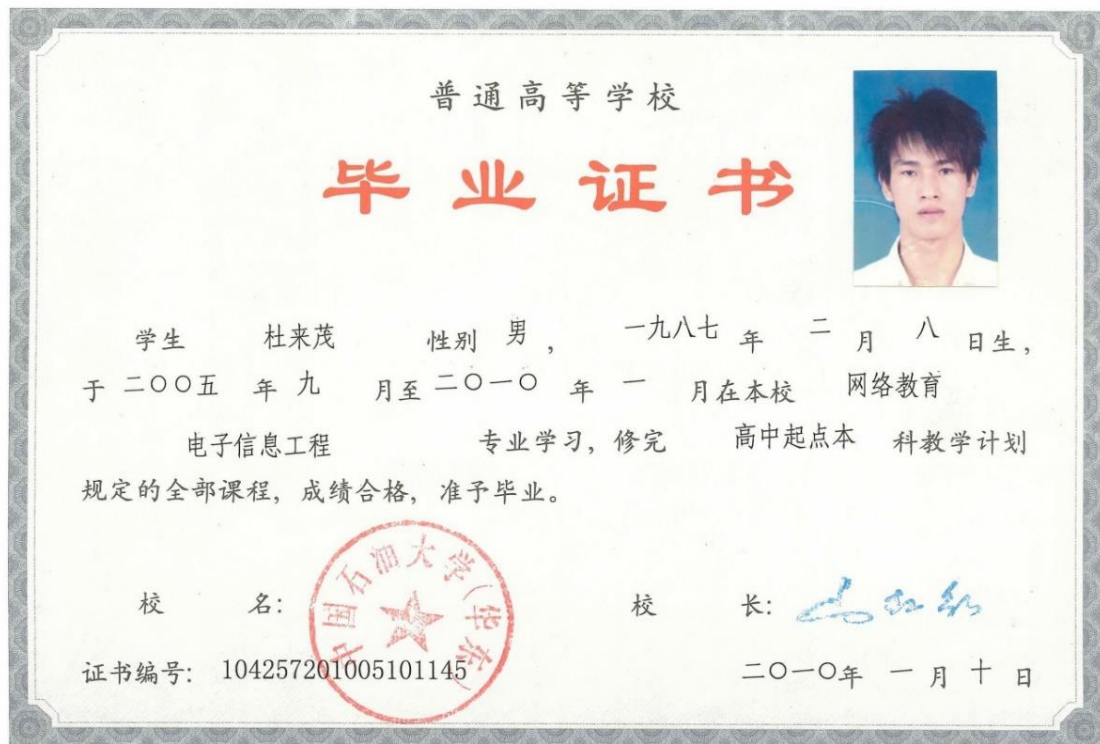 普通高等学校
毕业证书
学生 杜来茂 性别 男 , 一九八七 年 二 月 八 日生,
于 二〇〇五 年 九 月至 二〇一〇 年 一 月在本校 网络教育
电子信息工程 专业学习, 修完 高中起点本 科教学计划
规定的全部课程, 成绩合格, 准予毕业。
中国石油大学(华东)
校 名: 校 长:
证书编号: 104257201005101145 二〇一〇年 一 月 十 日